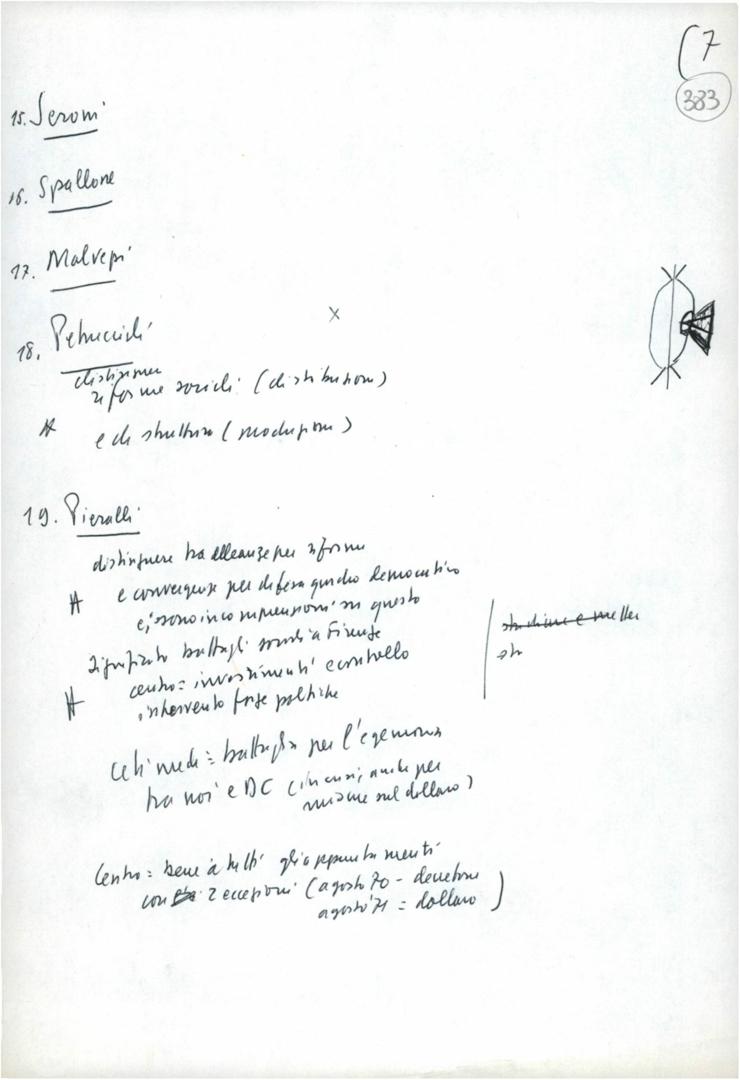 (7
383
15. Seroni
16. Spallone
17. Malvezzi
18. Petruccioli
X
distinzione
riforme sociali (distribuzione)
e di struttura (produzione)
19. Pieralli
distinguere tra alleanze per riforme
e convergenze per difesa quadro democratico
ci sono incomprensioni su questo
significato battaglie a Firenze
centro = investimenti e controllo
intervento forze politiche
Ceti medi = battaglia per l'egemonia
tra noi e DC (in crisi, anche per
misure sul dollaro)
Centro = bene a tutti gli appuntamenti
con 2 eccezioni (agosto 70 - decretone
agosto '71 = dollaro)
str